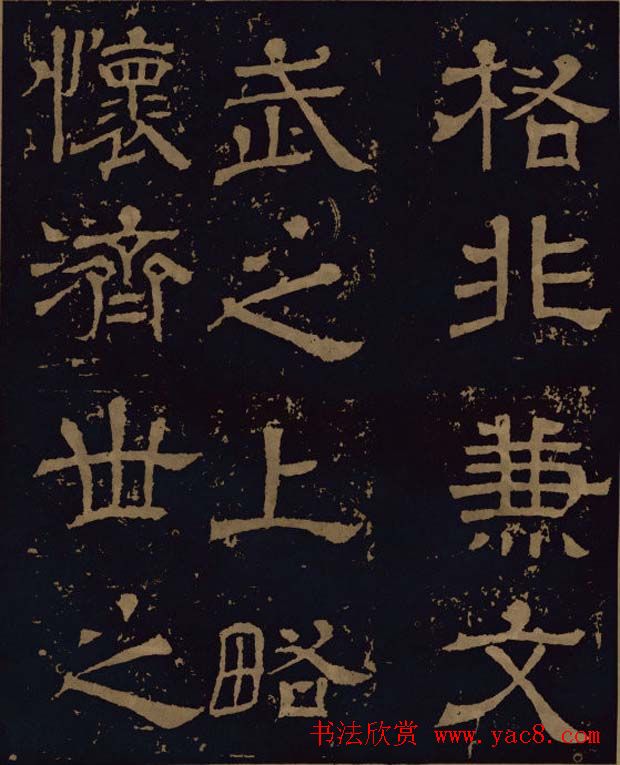 格非兼文
武之上略
懷濟世之
书法欣赏 www.yac8.com